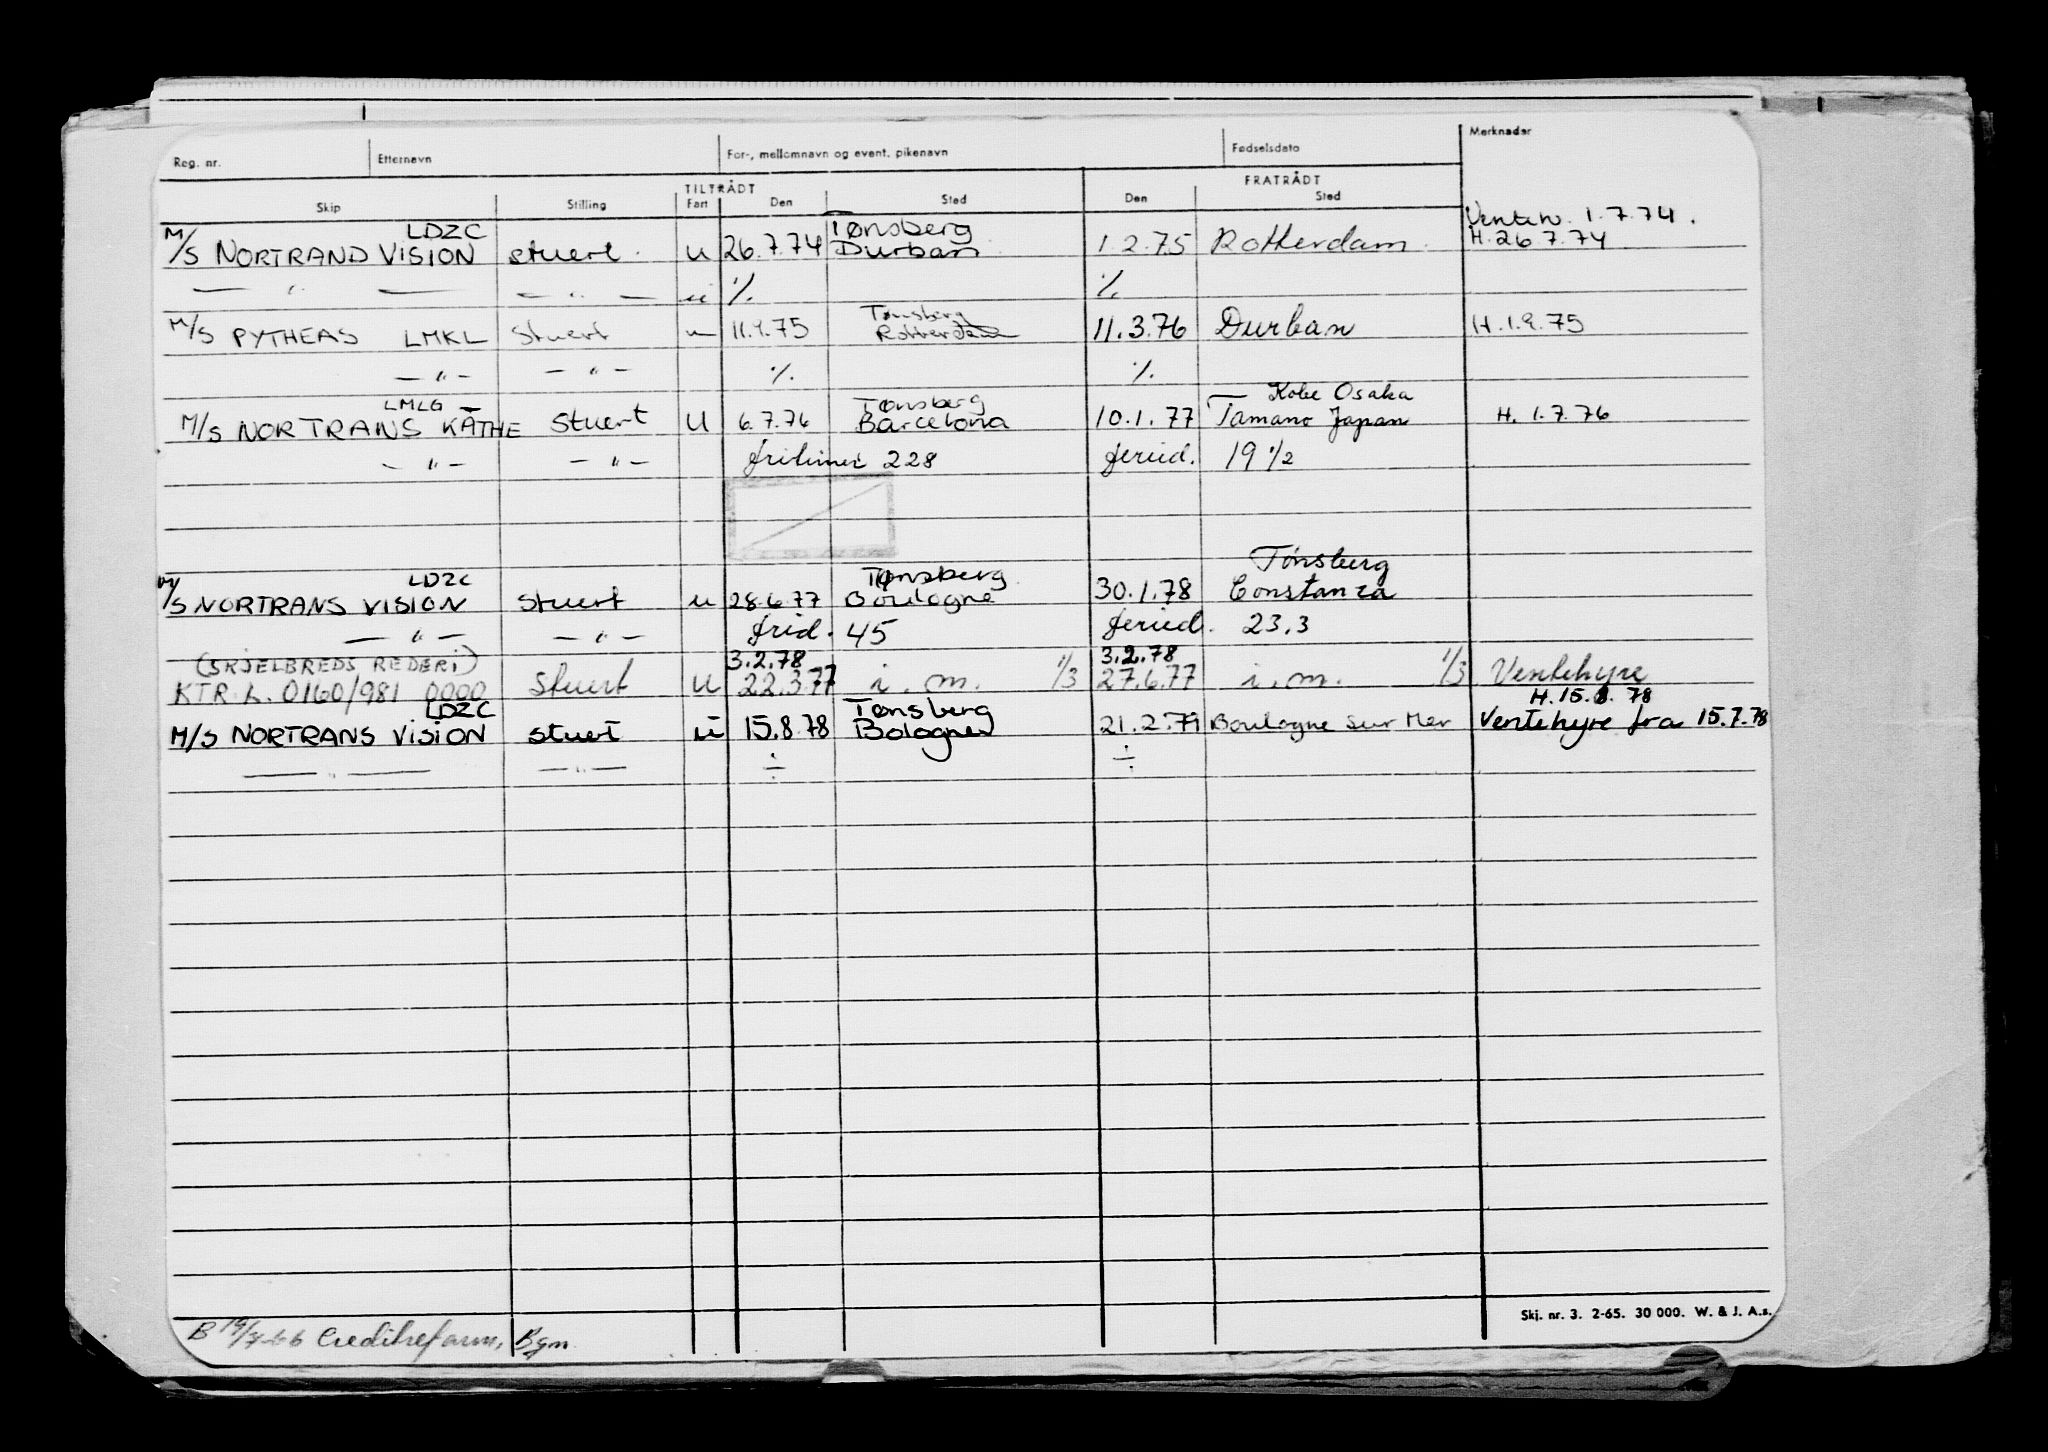 Reg. nr. Etternavn For-, mellomnavn og event. pikenavn Fødselsdato Merknader
TILTRÅDT FRATRÅDT
Skip Stilling Fart Den Sted Den Sted
LDZC Tønsberg Venteh. 1.7.74.
M/S NORTRAND VISION stuert. u 26.7.74 Durban 1.2.75 Rotterdam. H. 26.7.74
— " — — " — u ÷ ÷
Tønsberg
M/S PYTHEAS LMKL Stuert u 11.9.75 Rotterdam 11.3.76 Durban H. 1.9.75
— " — — " — ÷ ÷
LMLG Tønsberg Kobe Osaka
M/S NORTRANS KÄTHE Stuert U 6.7.76 Barcelona 10.1.77 Tamano Japan H. 1.7.76
— " — — " — fritimer 228 feried. 19 1/2
LDZC Tønsberg Tønsberg
M/S NORTRANS VISION Stuert u 28.6.77 Boulogne 30.1.78 Constanza
— " — — " — frid. 45 feried. 23.3
(SKJELBREDS REDERI) 3.2.78 3.2.78
KTR.L. 0160/981 0000 Stuert U 22.3.77 i.m. 1/3 27.6.77 i.m. 1/3 Ventehyre
LDZC Tønsberg H. 15.8.78
M/S NORTRANS VISION stuert u 15.8.78 Bologne 21.2.79 Boulogne sur Mer Ventehyre fra 15.7.78
— " — — " — ÷ ÷
Skj. nr. 3. 2-65. 30 000. W. & J. A.s.
B Bgn.